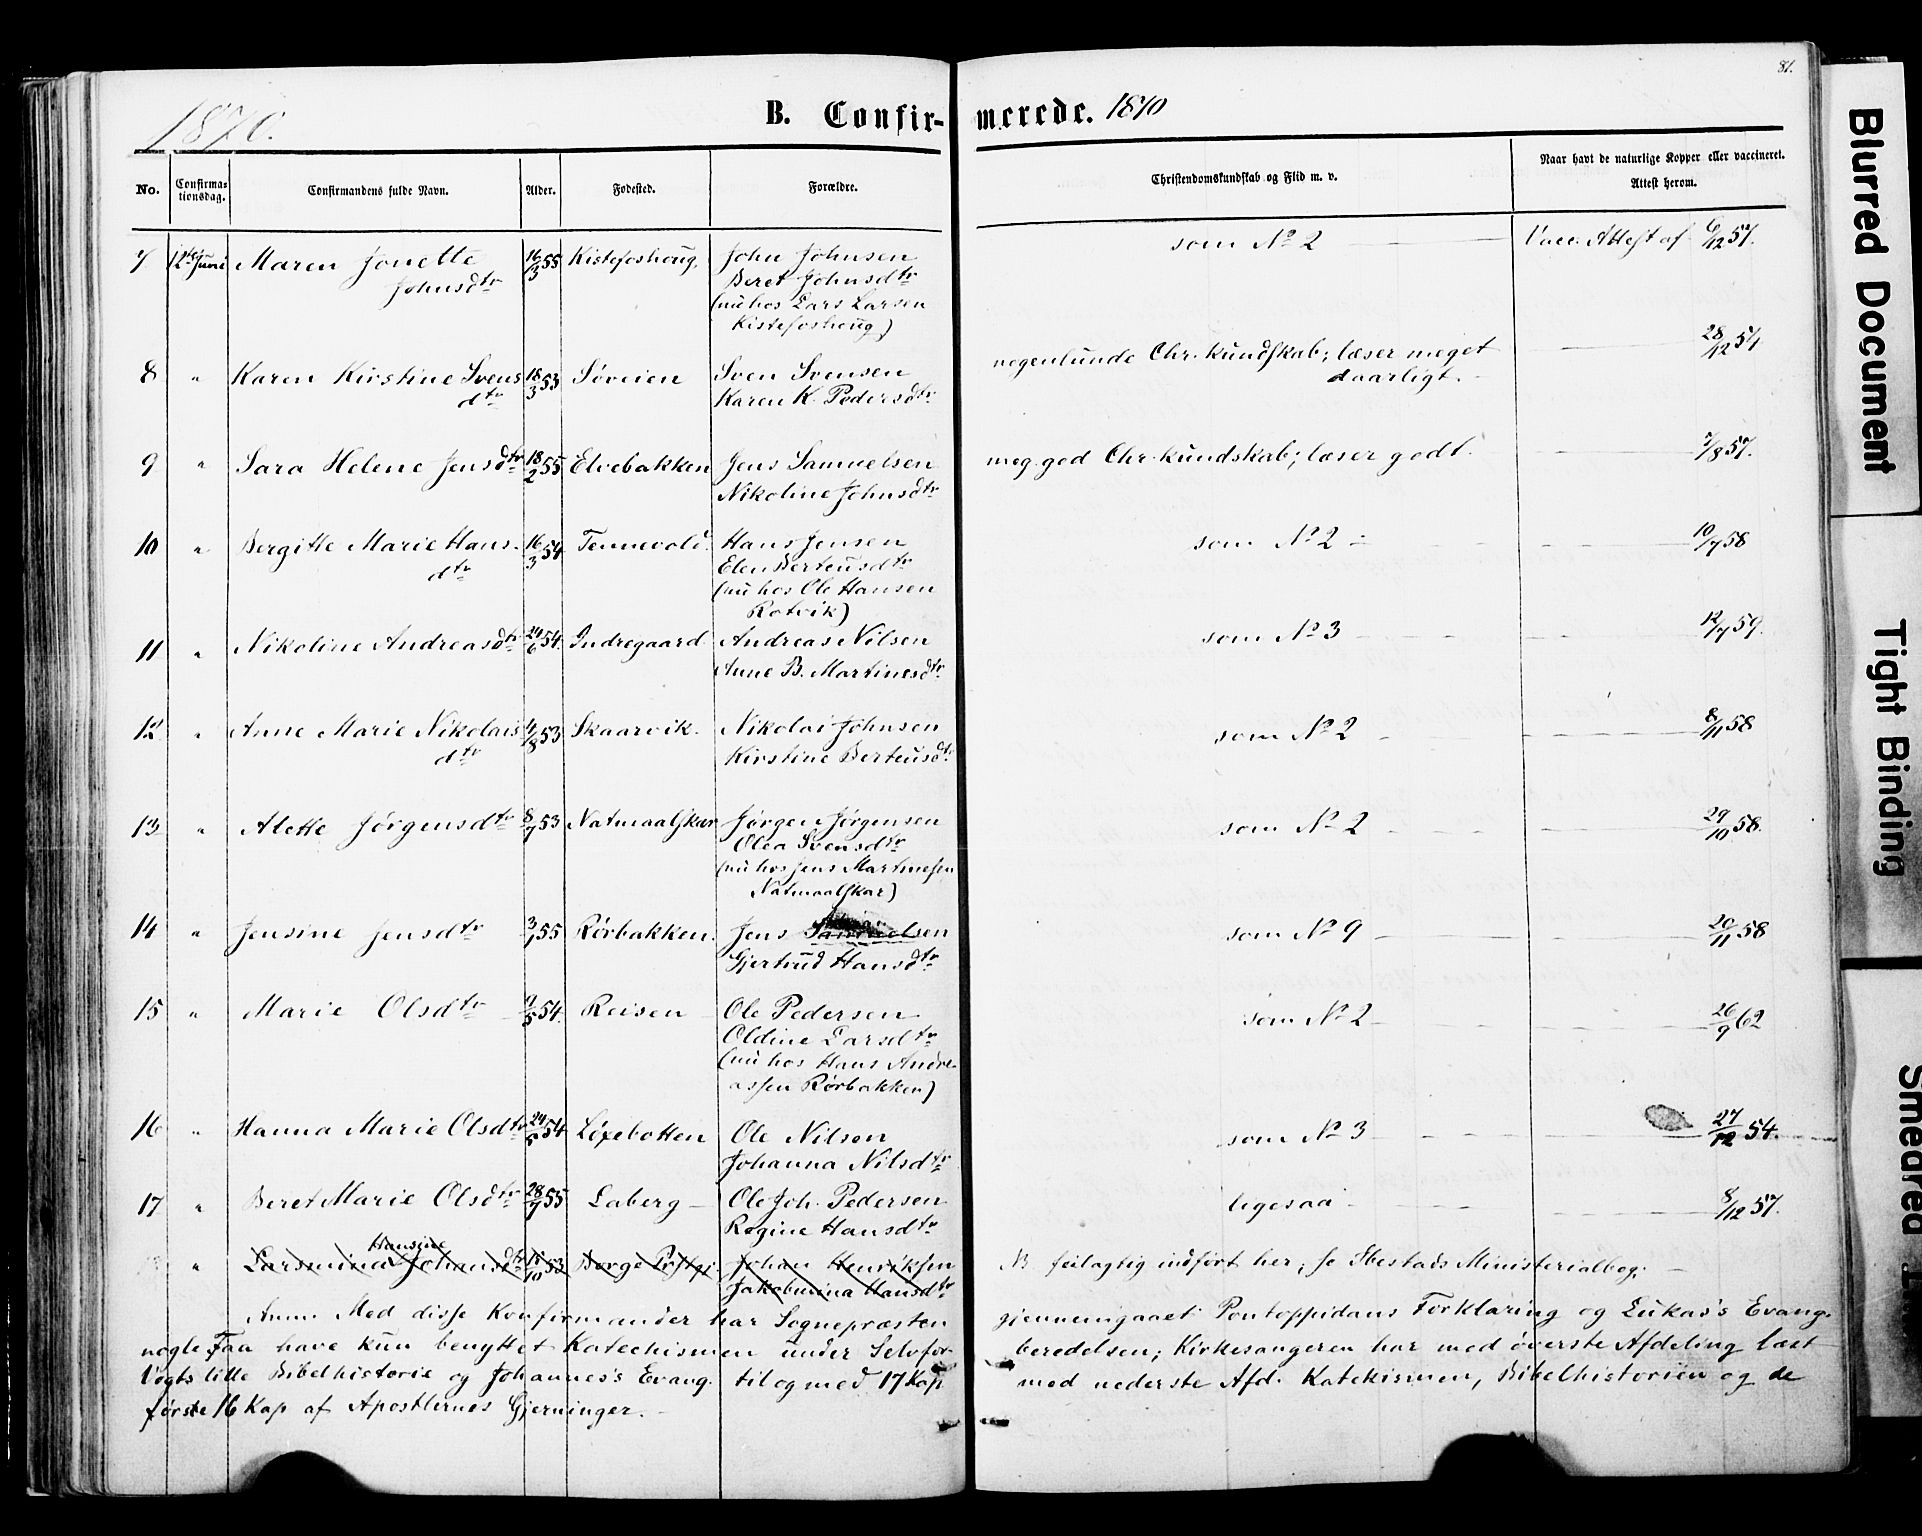 81.
1870.
B. Confirmerede. 1870
No. Confirmationsdag. Confirmandens fulde Navn. Alder. Fødested. Forældre. Christendomskundskab og Flid m. v. Naar havt de naturlige Kopper eller vaccineret. Attest herom.
7 12te Juni Maren Jonette 16/3 55 Kistefoshoug. John Johnsen som No 2 Vacc. Attest af 6/12 57.
Johnsdtr Beret Johnsdtr
(nu hos Lars Larsen
Kistefoshoug)
8 " Karen Kirstine Svens 18/3 53 Søveien Sven Svensen nogenlunde Chr. kundskab; læser meget 28/12 54
dtr Karen K. Pedersdtr daarligt.
9 " Sara Helene Jensdtr 18/2 55 Elvebakken Jens Samuelsen meg. god Chr. kundskab; læser godt. 7/8 57.
Nikoline Johnsdtr
10 " Bergitte Marie Hans 16/3 54 Tennevold. Hans Jensen som No 2 10/7 58
dtr Elen Berteusdtr
(nu hos Ole Hansen
Rotvik)
11 " Nikoline Andreasdtr 24/6 54. Indregaard Andreas Nilsen som No 3 12/7 59.
Anne B. Martinesdtr
12 " Anne Marie Nikolais 4/8 53 Skaarvik. Nikolai Johnsen som No 2 8/11 58
dtr Kirstine Berteusdtr
13 " Alette Jørgensdtr 8/7 53 Natmaalskar Jørgen Jørgensen som No 2 29/10 58.
Olea Svensdtr
(nu hos Jens Martinesen
Natmaalskar)
14 " Jensine Jensdtr 3/1 55 Rørbakken. Jens Samuelsen som No 9 20/11 58
Gjertrud Hansdtr
15 " Marie Olsdtr 1/5 54. Reisen Ole Pedersen som No 2 26/9 62
Oldine Larsdtr
(nu hos Hans Andre-
assen Rørbakken)
16 " Hanna Marie Olsdtr 24/5 54 Løxebotten Ole Nilsen som No 3 27/12 54.
Johanna Nilsdtr
17 " Beret Marie Olsdtr 28/9 55 Laberg Ole Joh. Pedersen ligesaa 8/12 57.
Regine Hansdtr
Hansine
" Larsmina Johansdtr 53 Borge Prstgj. Johan Henriksen NB feilagtig indført her; se Ibestads Ministerialbog.
Jakobmina Hansdtr
Anm. Med disse Konfirmander har Sognepræsten gjennemgaaet Pontoppidans Forklaring og Lukas's Evang.
nogle Faa have kun benyttet Katechismen under Selvforberedelsen; Kirkesangeren har med øverste Afdeling læst
Vogts lille Bibelhistorie og Johannes's Evang. til og med 17 Kap. med nederste Afd. Katekismen, Bibelhistorien og de
første 16 Kap af Apostlernes Gjerninger.
Blurred Document
Tight Binding
Smeared